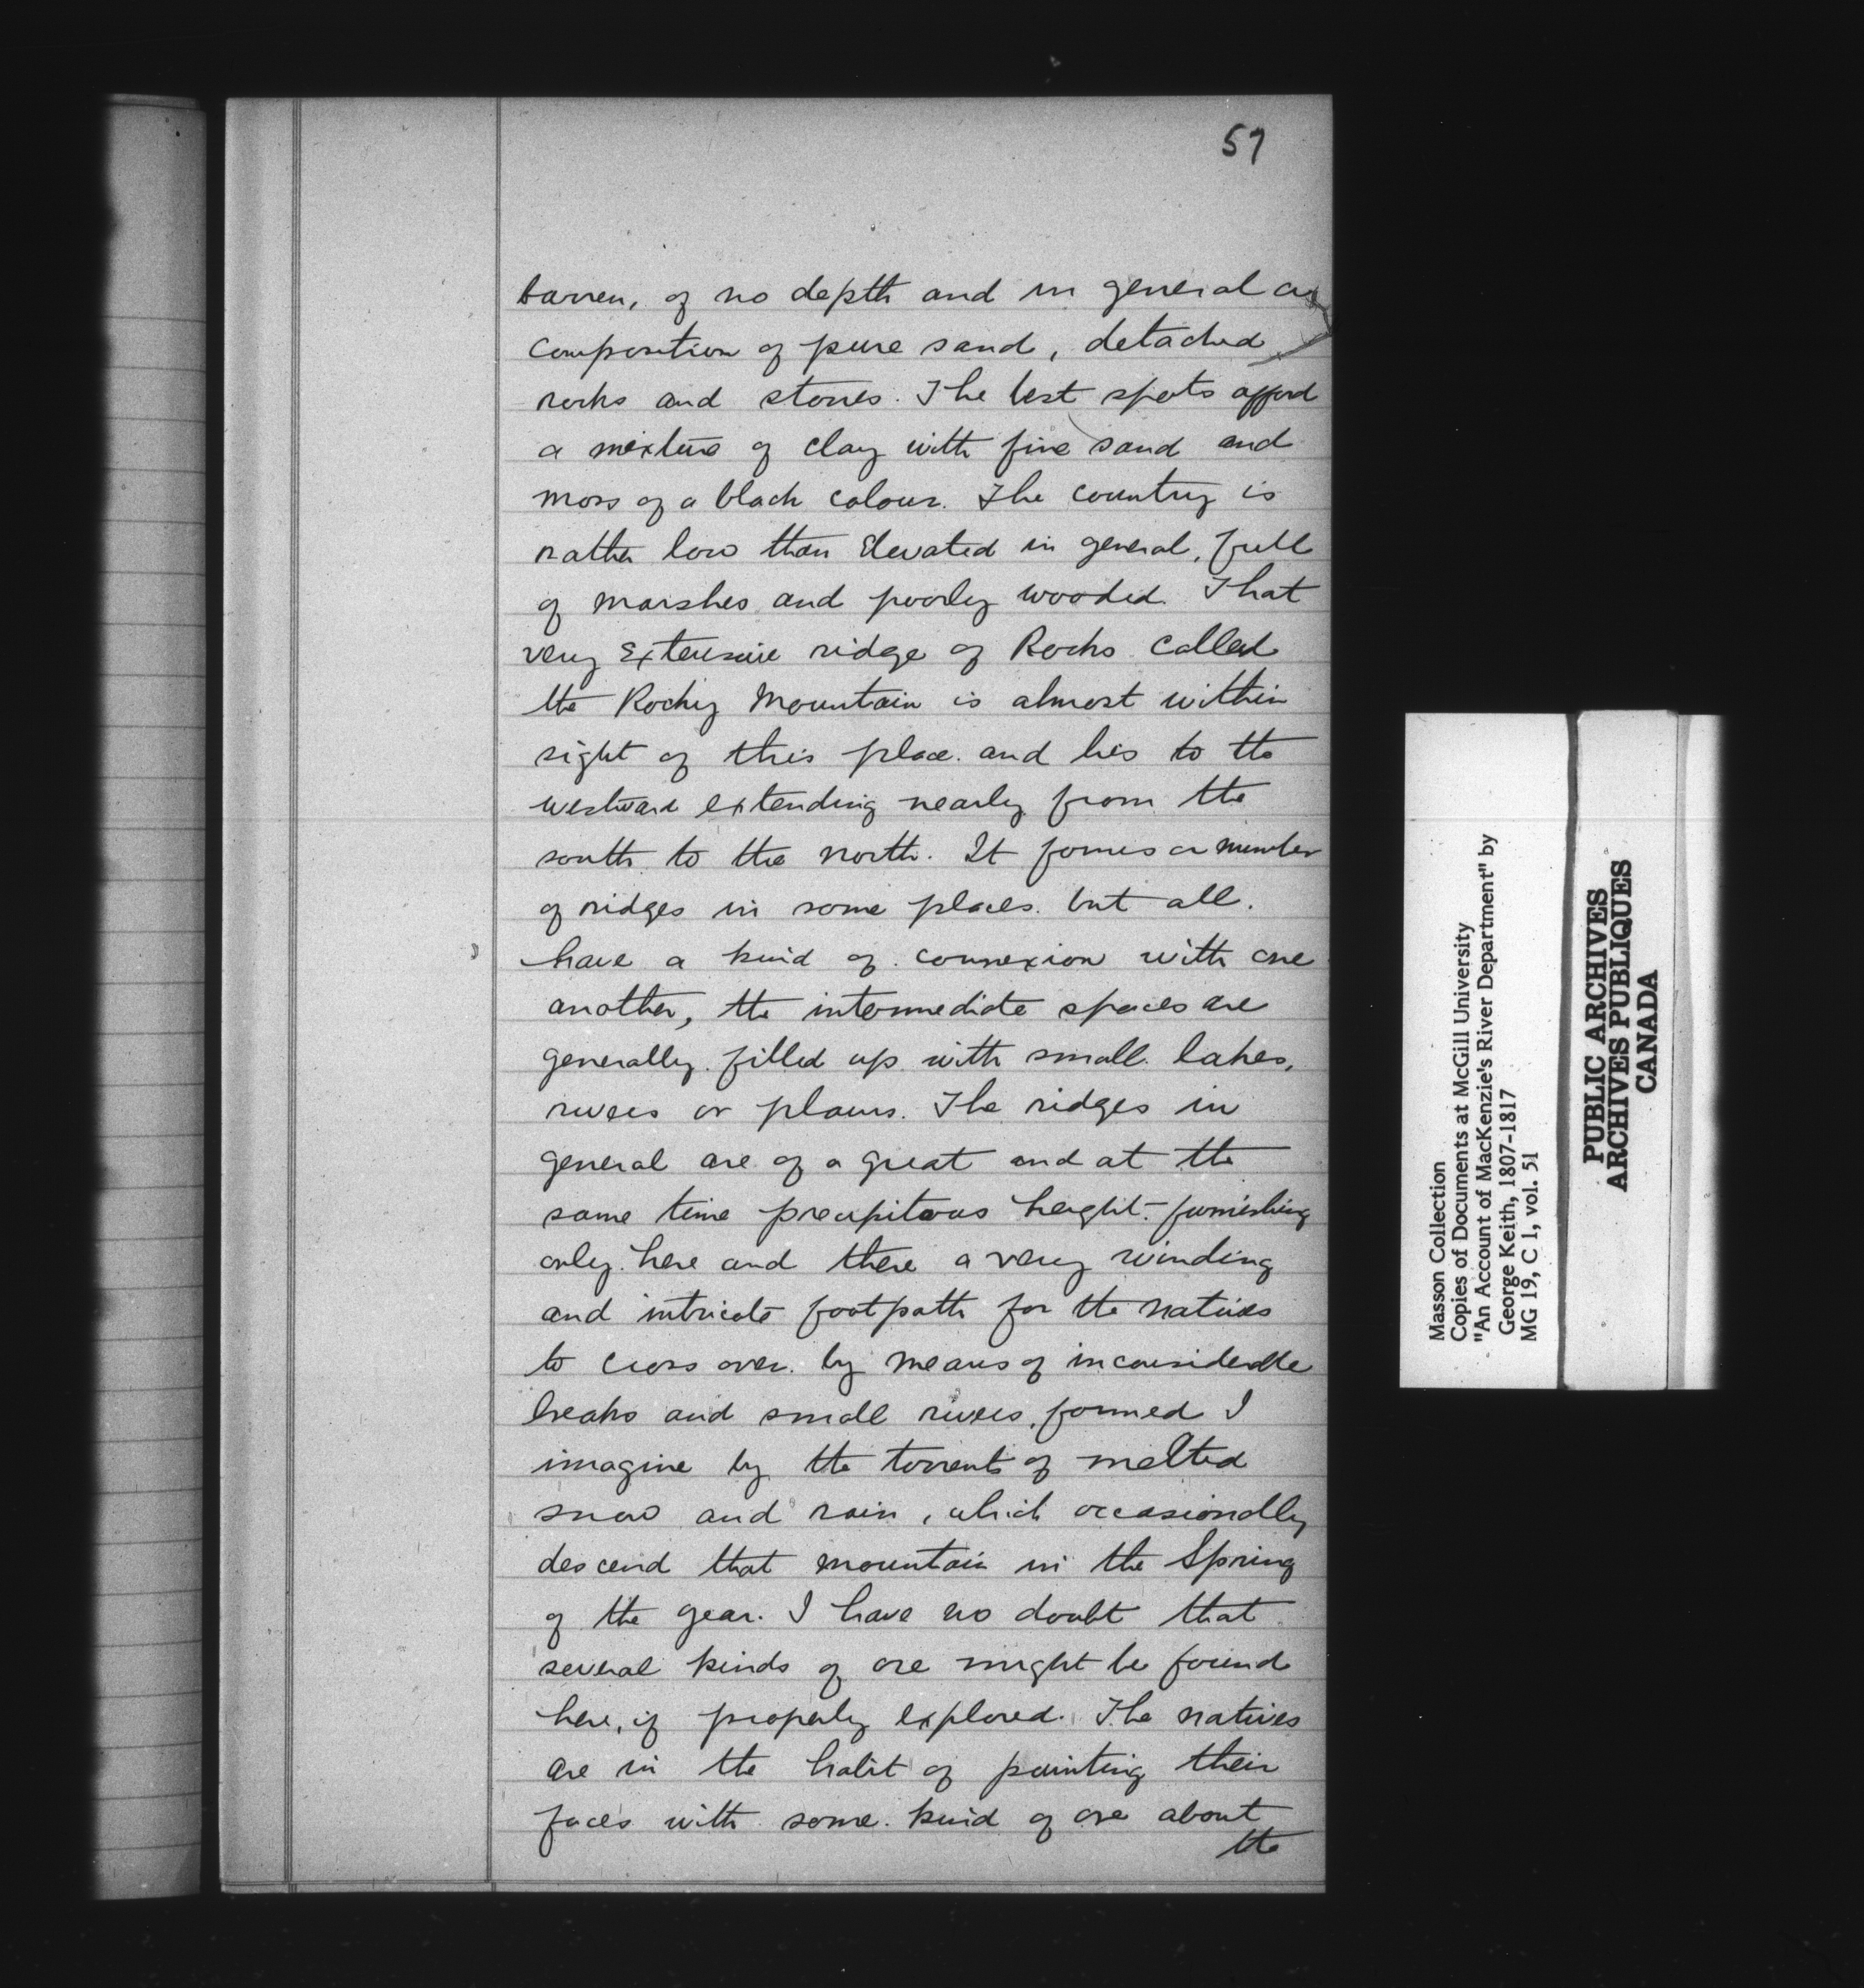 57
barren, of no depth and in general a
composition of pure sand, detached
rocks and stones. The best spots afford
a mixture of clay with fine sand and
moss of a black colour. The country is
rather low than Elevated in general, full
of marshes and poorly wooded. That
very Extensive ridge of Rocks called
the Rocky Mountain is almost within
sight of this place. and lies to the
westward extending nearly from the
south to the north. It forms a number
of ridges in some places. but all.
have a kind of connexion with one
another, the intermediate spaces are
generally filled up with small lakes,
rivers or plains. The ridges in
general are of a great and at the
same time precipitous height - furnishing
only here and there a very winding
and intricate footpath for the natives
to cross over. by means of inconsiderable
breaks and small rivers, formed I
imagine by the torrents of melted
snow and rain, which occasionally
descend that mountain in the Spring
of the year. I have no doubt that
several kinds of ore might be found
here, if properly explored. The natives
are in the habit of painting their
faces with some kind of ore about
the
Masson Collection
Copies of Documents at McGill University
"An Account of MacKenzie's River Department" by
George Keith, 1807-1817
MG 19, C 1, vol. 51
PUBLIC ARCHIVES
ARCHIVES PUBLIQUES
CANADA